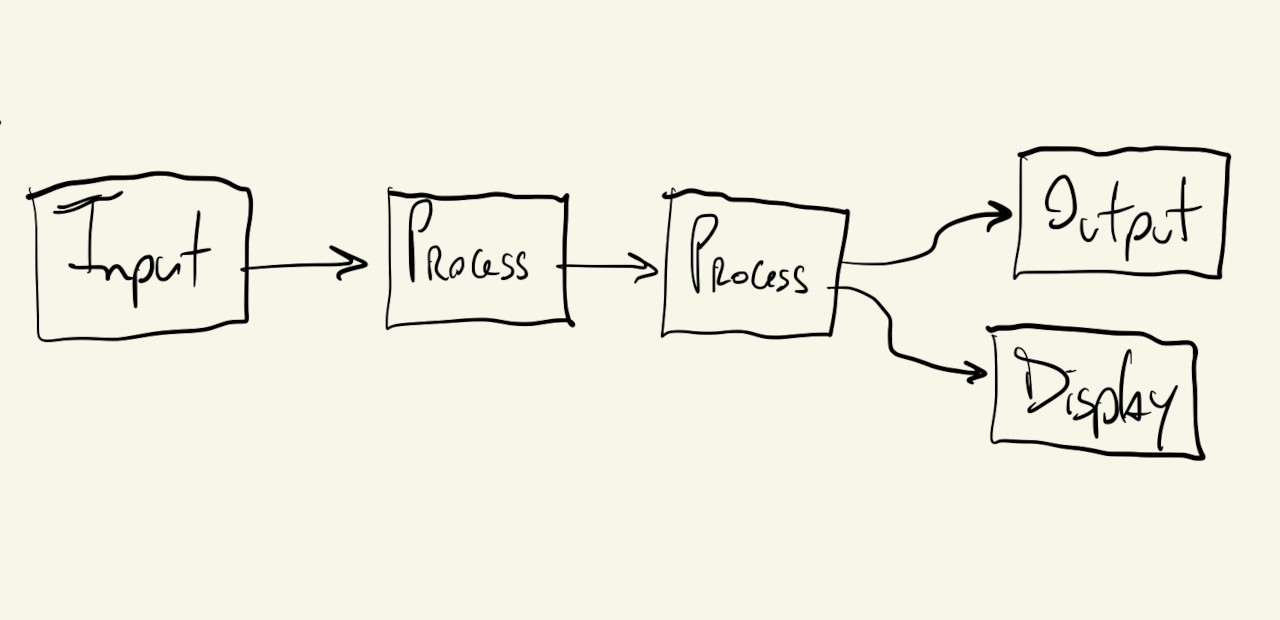 Input
Process
Process
Output
Display